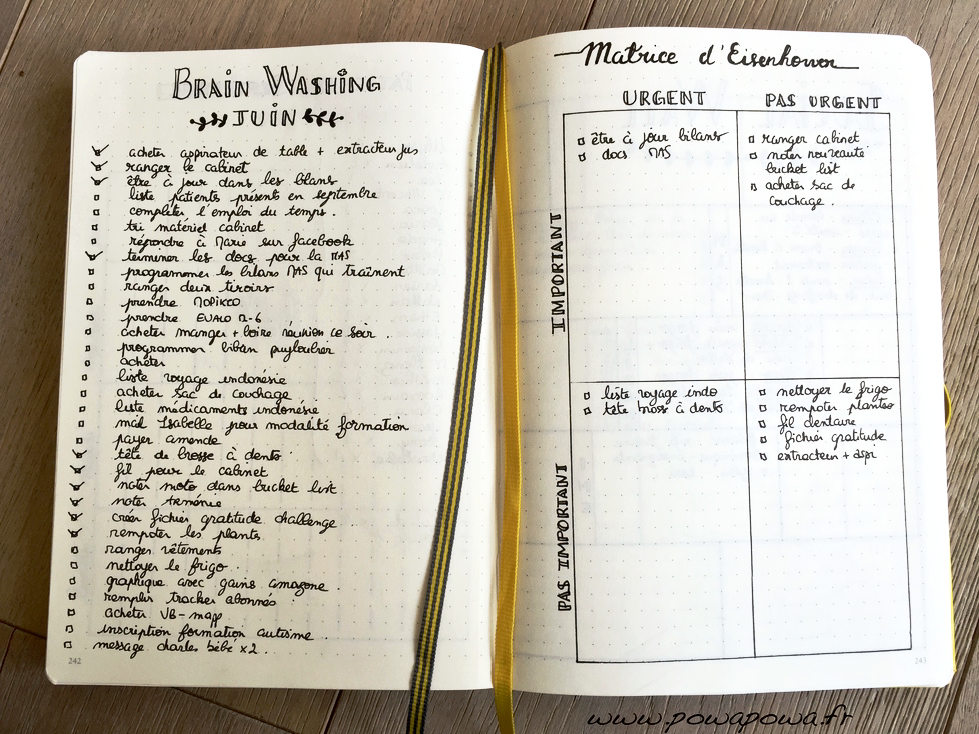 BRAIN WASHING
JUIN
acheter aspirateur de table + extracteur jus
ranger le cabinet
être à jour dans les bilans
liste patients présents en septembre
compléter l'emploi du temps.
tri matériel cabinet
répondre à Marie sur facebook
terminer les docs pour la MAS
programmer les bilans MAS qui traînent
ranger deux tiroirs
prendre
prendre EVALO 2-6
acheter manger + boire réunion ce soir.
programmer bilan
acheter
liste voyage indonésie
acheter sac de couchage
liste médicaments indonésie
mail Isabelle pour modalité formation
payer amende
tête de brosse à dents
fil pour le cabinet
noter moto dans bucket list.
noter Arménie
créer fichier gratitude challenge
rempoter les plants
ranger vêtements
nettoyer le frigo.
graphique avec gains amazone
remplir tracker abonnés
acheter VB-mapp
inscription formation autisme
message charles bébé x2.
242
Matrice d'Eisenhower
URGENT
PAS URGENT
IMPORTANT
être à jour bilans
docs MAS
ranger cabinet
noter nouveauté
bucket list
acheter sac de
couchage.
PAS IMPORTANT
liste voyage indo
tête bross à dents
nettoyer le frigo
rempoter plantes
fil dentaire
fichier gratitude
extracteur + aspi
243
www.powapowa.fr